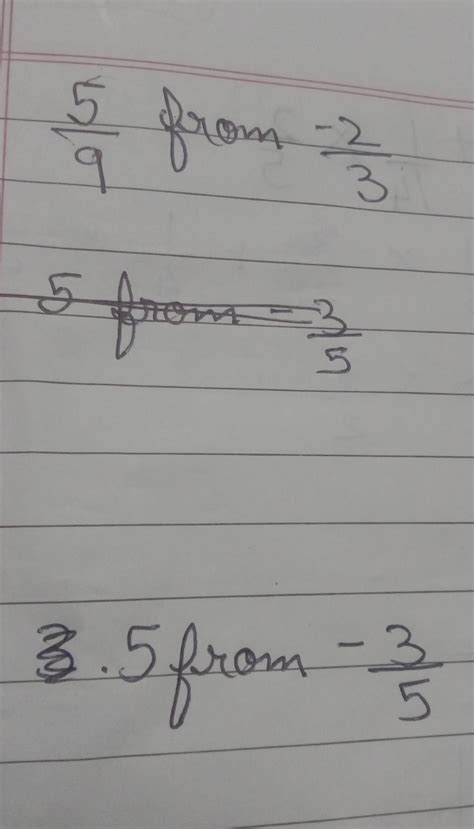 5/9 from -2/3
5 from -3/5
3. 5 from -3/5